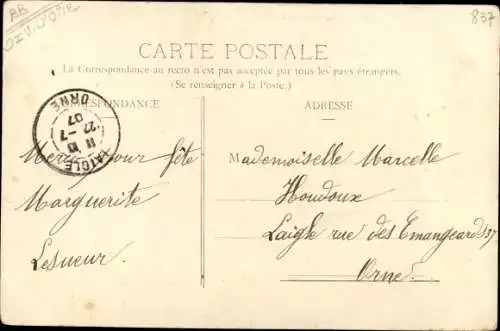 BB
837
CARTE POSTALE
La Correspondance au recto n'est pas acceptée par tous les pays étrangers.
(Se renseigner à la Poste.)
CORRESPONDANCE
ADRESSE
LAIGLE
ORNE
22-7
07
Merci pour fête
Marguerite
Lesueur.
Mademoiselle Marcelle
Houdoux
Laigle rue des Emangeards 37
Orne.